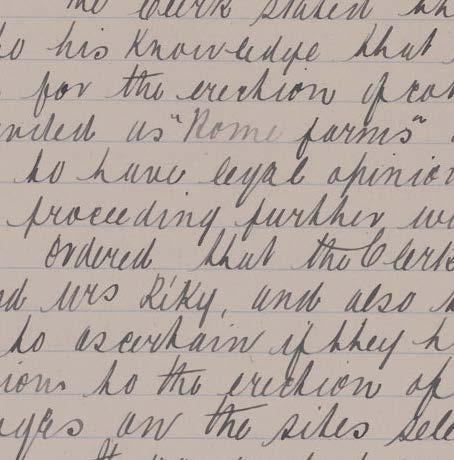 The Clerk stated th
to his knowledge that
for the erection of cot
nded as "Home farms"
to have legal opinion
proceeding further wi
Ordered that the Clerk
nd Mrs Riky, and also
to ascertain if they h
ions to the erection of
ages on the sites sele